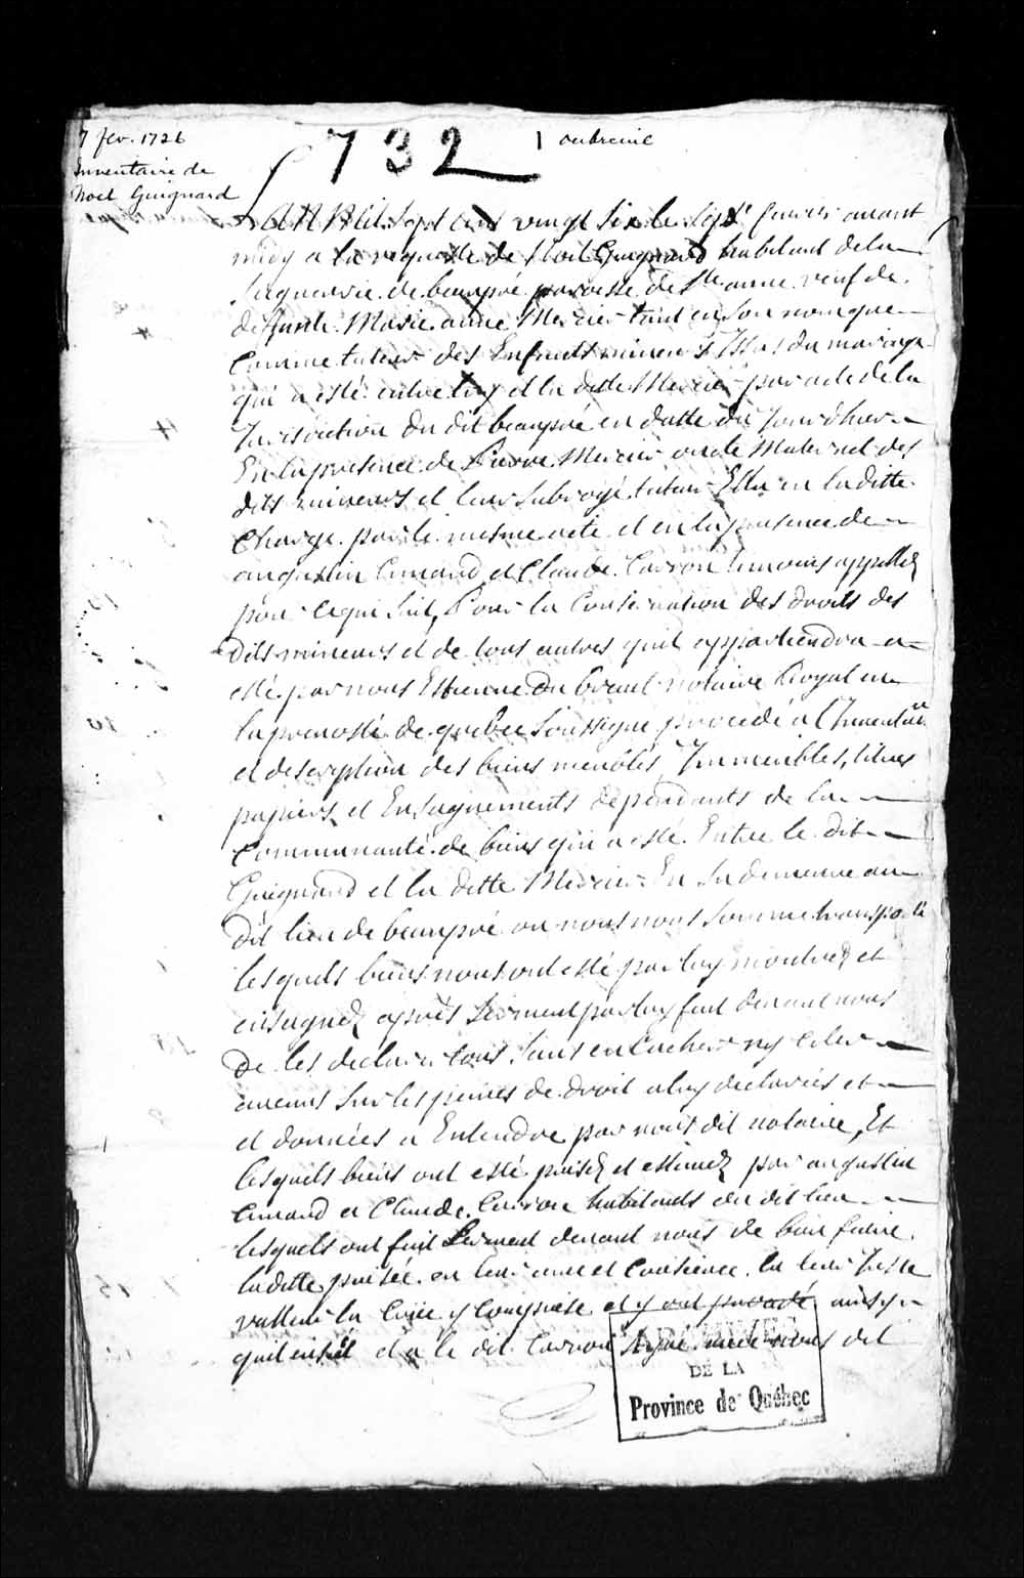 7 fev. 1726
Inventaire de
Noel Guignard
732
1 oubreuil
LAN Mil Sept cent vingt Six le Sept fevrier avant
midy a la requeste de Noel Guignard habitant de la
Seigneurie de beaupré paroisse de Ste anne veuf de
deffunte Marie anne Mercier tant en Son nom que
Comme tuteur des Enfants mineurs Issus du mariage
qui a esté entre luy et la ditte Mercier par acte de la
Jurisdiction du dit beaupré en datte du Jourdhuy
En la presence de Pierre Mercier oncle Maternel des
dits mineurs et leur Subrogé tuteur Ellu en laditte
Charge par le mesme acte et en la presence de
augustin Simard et Claude Carron temoins appellez
pour ce qui Suit, Pour la Conservation des droits des
dits mineurs et de tous autres quil appartiendra a
esté par nous Estienne Du breuil notaire Royal en
la prevosté de quebec Soussigné procedé a l'Inventaire
et description des biens meubles Immeubles, titres
papiers et Enseignements dependants de la
Communauté de biens qui a esté Entre le dit
Guignard et la ditte Mercier En Sa demeure au
dit lieu de beaupré ou nous nous Somme transporté
lesquels biens nous ont esté par luy montrez et
enseignez apres Serment par luy fait devant nous
de les declarer tous Sans en cacher ny celer
aucuns Sur les peines de droit a luy declarées et
et données a Entendre par nous dit notaire, Et
lesquels biens ont esté prisez et estimez par augustin
Simard et Claude Carron habitants du dit lieu
lesquels ont fait Serment devant nous de bien faire
laditte prisée en leur ame et Consience la leur Juste
valleur la Crüe y Comprise et y ont procedé ainsy
quil ensuit et a le dit Carron Signé avec nous dit
ARCHIVES
DE LA
Province de Québec